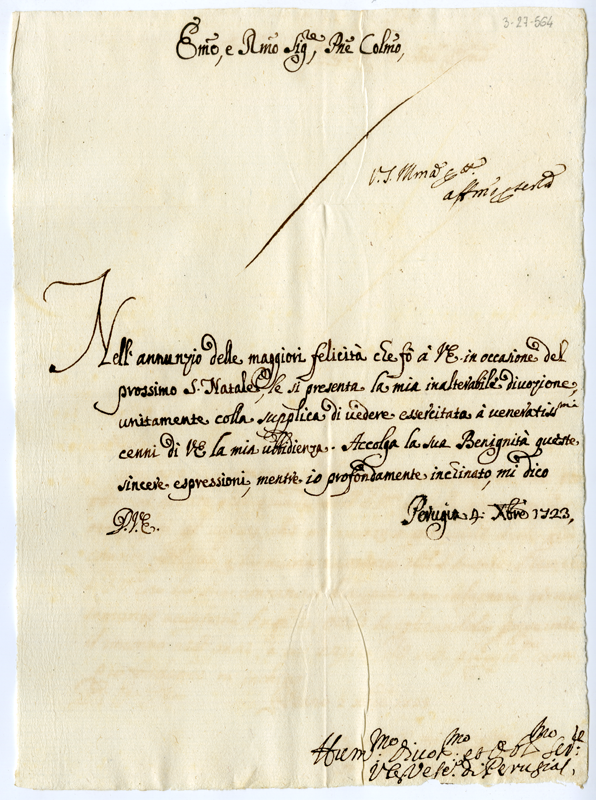 3-27-564
Emo, e Rmo Sigre, Pne Colmo,
Nell' annunzio delle maggiori felicità che fò à VE in occasione del
prossimo S. Natale, le si presenta la mia inalterabile divozione,
unitamente colla supplica di vedere essercitata à veneratissmi
cenni di VE la mia ubbidienza. Accolga la sua Benignità queste
sincere espressioni, mentre io profondamente inclinato, mi dico
D.V.E.
Perugia 4: Xbre 1723,
Hummo divotmo et obmo Serre
Vesc. di Perugia,